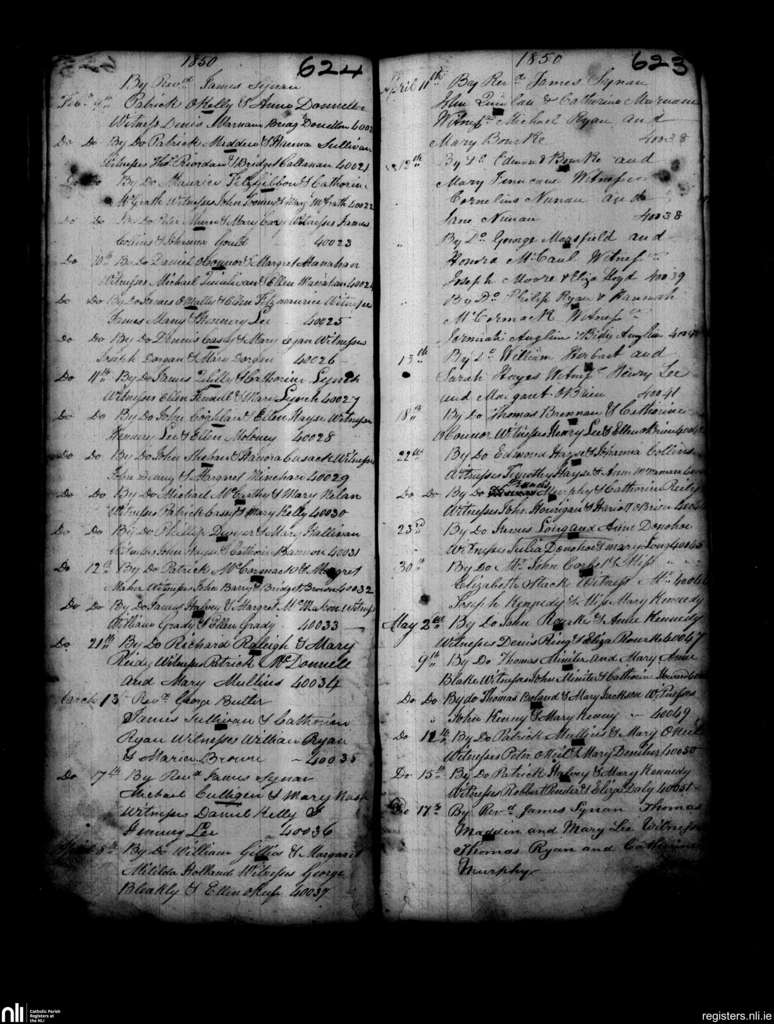 1850 624
By Revd James Synan
Feb 9th Patrick OKelly & Anne Donnellan
Witness Denis Marnam Bridg Donellan 4002
Do Do By Do Patrick Madden & Hanna Sullivan
Witnesses Thos Riordan & Bridget Callanan 40021
Do By Do Maurice Fitzgibbon & Catherine
McGrath Witnesses John & Mary McGrath 40022
Do Do By Do & Mary Witnesses James
& Johanna 40023
Do 10th By Do Daniel OConnor & Margret Hanahan
Witnesses Michael Quinlivan & Ellen 40024
Do Do By Do James OMalley & Ellen Fitzmaurice Witness
James & Lee 40025
Do Do By Do Dennis Casey & Mary Egan Witnesses
Joseph Dorgan & Mary Dorgan 40026
Do 11th By Do James & Catherine Lynch
Witnesses Ellen & Mary Lynch 40027
Do Do By Do John Coghlan & Ellen Hayes Witnesses
Henery Lee & Ellen Moloney 40028
Do Do By Do John & Hanora Cusack Witness
John & Margret Minehan 40029
Do Do By Do Michael McCarthy & Mary Nelan
Witness Patrick & Mary Kelly 40030
Do Do By Do Phillip Dwyer & Mary Hallinan
Witness John & Catherin Bannon 40031
Do 12th By Do Patrick McCormack & Margret
Maher Witnesses John Barry & Bridget Brown 40032
Do Do By Do James Hartney & Margret McMahon Witness
William Grady & Ellen Grady 40033
Do 21st By Do Richard Raleigh & Mary
Reidy Witness Patrick McDonnell
and Mary Mullins 40034
March 13 Revd George Butler
James Sullivan & Catherine
Ryan Witnesses William Ryan
& Maria Browne 40035
Do 17th By Revd James Synan
Michael Culligan & Mary Nash
Witnesses Daniel Kelly &
Lee 40036
April 8th By Do William Gillis & Margaret
Matilda Holland Witness George
Bleakly & Ellen OKeefe 40037
1850 623
April 11th By Revd James Synan
John Quinlan & Catherine Marnane
Witness Michael Ryan and
Mary Bourke 40038
12th By Do Edmond Bourke and
Mary Finucane Witness
Cornelius Nunan and
Jane Nunan 40038
By Do George Mansfield and
Honora McCaul Witness
Joseph Moore & Eliza Floyd 40039
By Do Philip Ryan & Hannah
McCormack Witness
Jeremiah Anglim & Betty Anglim
13th By Do William Herbert and
Sarah Hayes Witness Henry Lee
and Margaret OBrien 40041
18th By Do Thomas Brennan & Catherine
OConnor Witnesses Henry Lee & Ellen OBrien
22nd By Do Edmond Hayes & Johanna Collins
Witnesses Timothy Hayes & Ann
Do Do By Do Murphy & Catherin Reidy
Witnesses John Hourigan & Hariet OBrien
23rd By Do James Long and Anne Donohoe
Witness Julia Donohoe & Mary Long 40045
30th By Do Mr John Corbet & Miss
Elizabeth Slack Witness Mr 40046
Joseph Kennedy & Miss Mary Kennedy
May 2nd By Do John Rourke & Anne Kennedy
Witnesses Denis Ring & Eliza Rourke 40047
9th By Do Thomas Miniter and Mary Anne
Blake Witness John Miniter & Catherin
Do Do By do Thomas Boland & Mary Jackson Witnesses
John Kenny & Mary Kenny 40049
Do 12th By Do Patrick Mullins & Mary ONeil
Witnesses Peter ONeil & Mary 40050
Do 15th By Do Patrick Hartney & Mary Kennedy
Witnesses Robert & Eliza Daly 40051
Do 17th By Revd James Synan Thomas
Madden and Mary Lee Witness
Thomas Ryan and Catherine
Murphy
nli Catholic Parish
Registers at
the NLI
registers.nli.ie